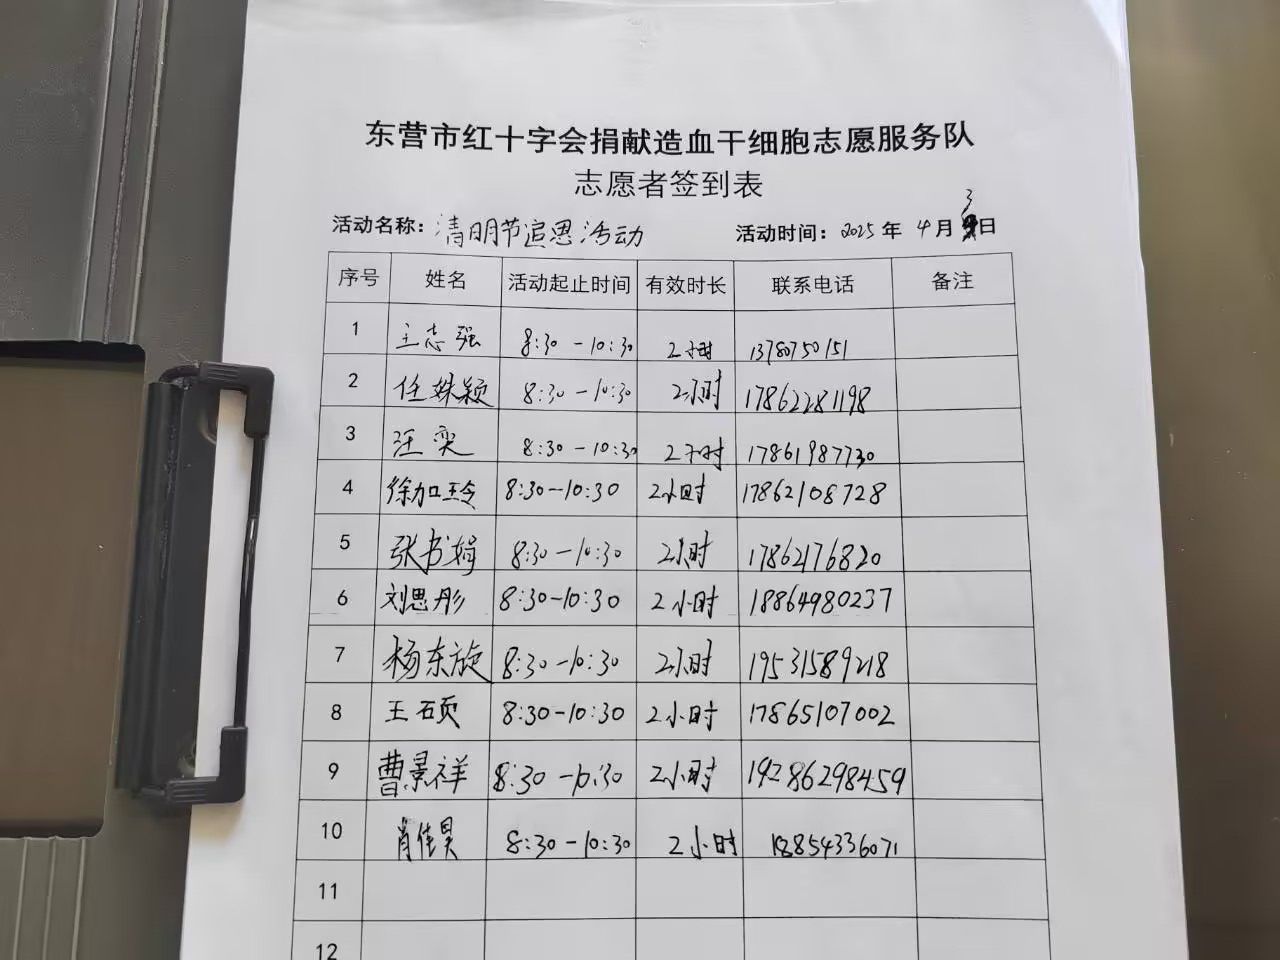 东营市红十字会捐献造血干细胞志愿服务队
志愿者签到表
活动名称：清明节追思活动 活动时间：2025年4月3日
序号 姓名 活动起止时间 有效时长 联系电话 备注
1 王志强 8:30-10:30 2小时 13780750151
2 任姝颖 8:30-10:30 2小时 17862281198
3 汪奕 8:30-10:30 2小时 17861987730
4 徐加玲 8:30-10:30 2小时 17862108728
5 张书娟 8:30-10:30 2小时 17862176820
6 刘思彤 8:30-10:30 2小时 18864980237
7 杨东旋 8:30-10:30 2小时 19531589218
8 王硕 8:30-10:30 2小时 17865107002
9 曹景祥 8:30-10:30 2小时
10 肖佳昊 8:30-10:30 2小时 18854336071
11
12